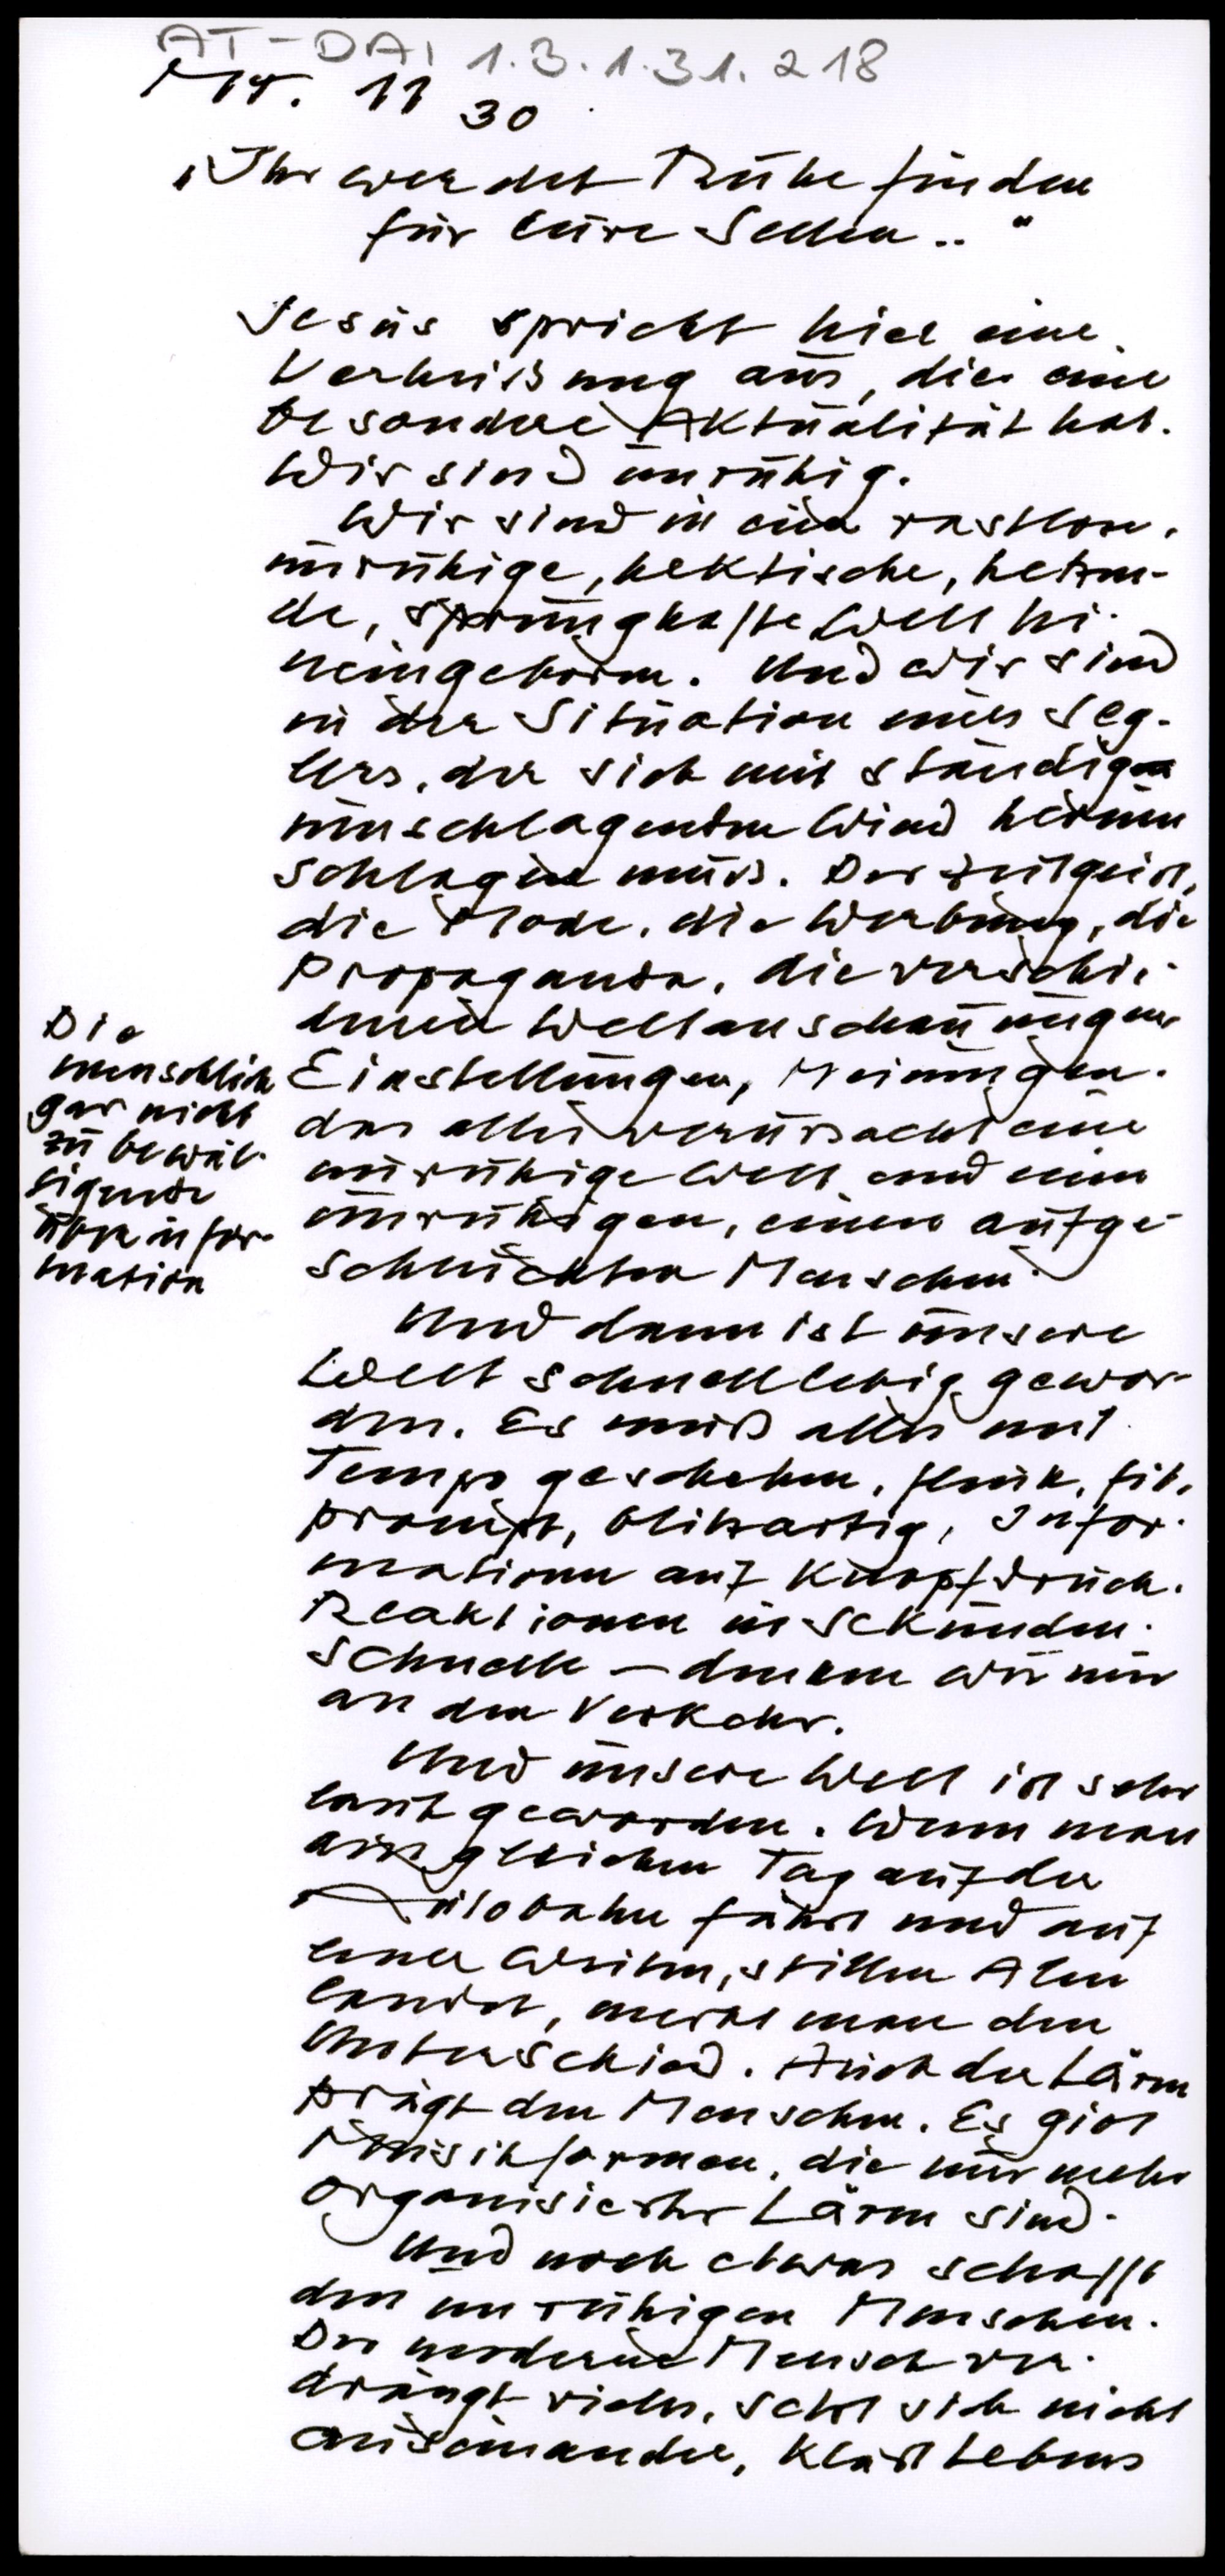 AT-DAI 1.3.1.31.218
Mt. 11 30
„Ihr werdet Ruhe finden
für eure Seelen.."
Jesus spricht hier eine
Verheißung aus, die eine
besondere Aktualität hat.
Wir sind unruhig.
Wir sind in eine rastlose,
unruhige, hektische, hetzen-
de, sprunghafte Welt hi-
neingeboren. Und wir sind
in der Situation eines Seg-
lers, der sich mit ständig
umschlagenden Wind herum
schlagen muss. Der Zeitgeist,
die Mode, die Werbung, die
Propaganda, die verschie-
denen Weltanschauungen,
Einstellungen, Meinungen.
das alles verursacht eine
unruhige Welt und einen
unruhigen, einen aufge-
scheuchten Menschen.
Die
menschlich
gar nicht
zu bewäl-
tigende
Überinfor-
mation
Und dann ist unsere
Welt schnelllebig gewor-
den. Es muß alles mit
Tempo geschehen, flink, fit,
prompt, blitzartig, Infor-
mationen auf Knopfdruck.
Reaktionen in Sekunden.
Schnelle – denken wir nur
an den Verkehr.
Und unsere Welt ist sehr
laut geworden. Wenn man
am gleichen Tag auf der
Autobahn fährt und auf
einer weiten, stillen Alm
landet, merkt man den
Unterschied. Auch der Lärm
prägt den Menschen. Es gibt
Musikformen, die nur mehr
organisierter Lärm sind.
Und noch etwas schafft
den unruhigen Menschen.
Der moderne Mensch ver-
drängt vieles, setzt sich nicht
auseinander, klärt Lebens